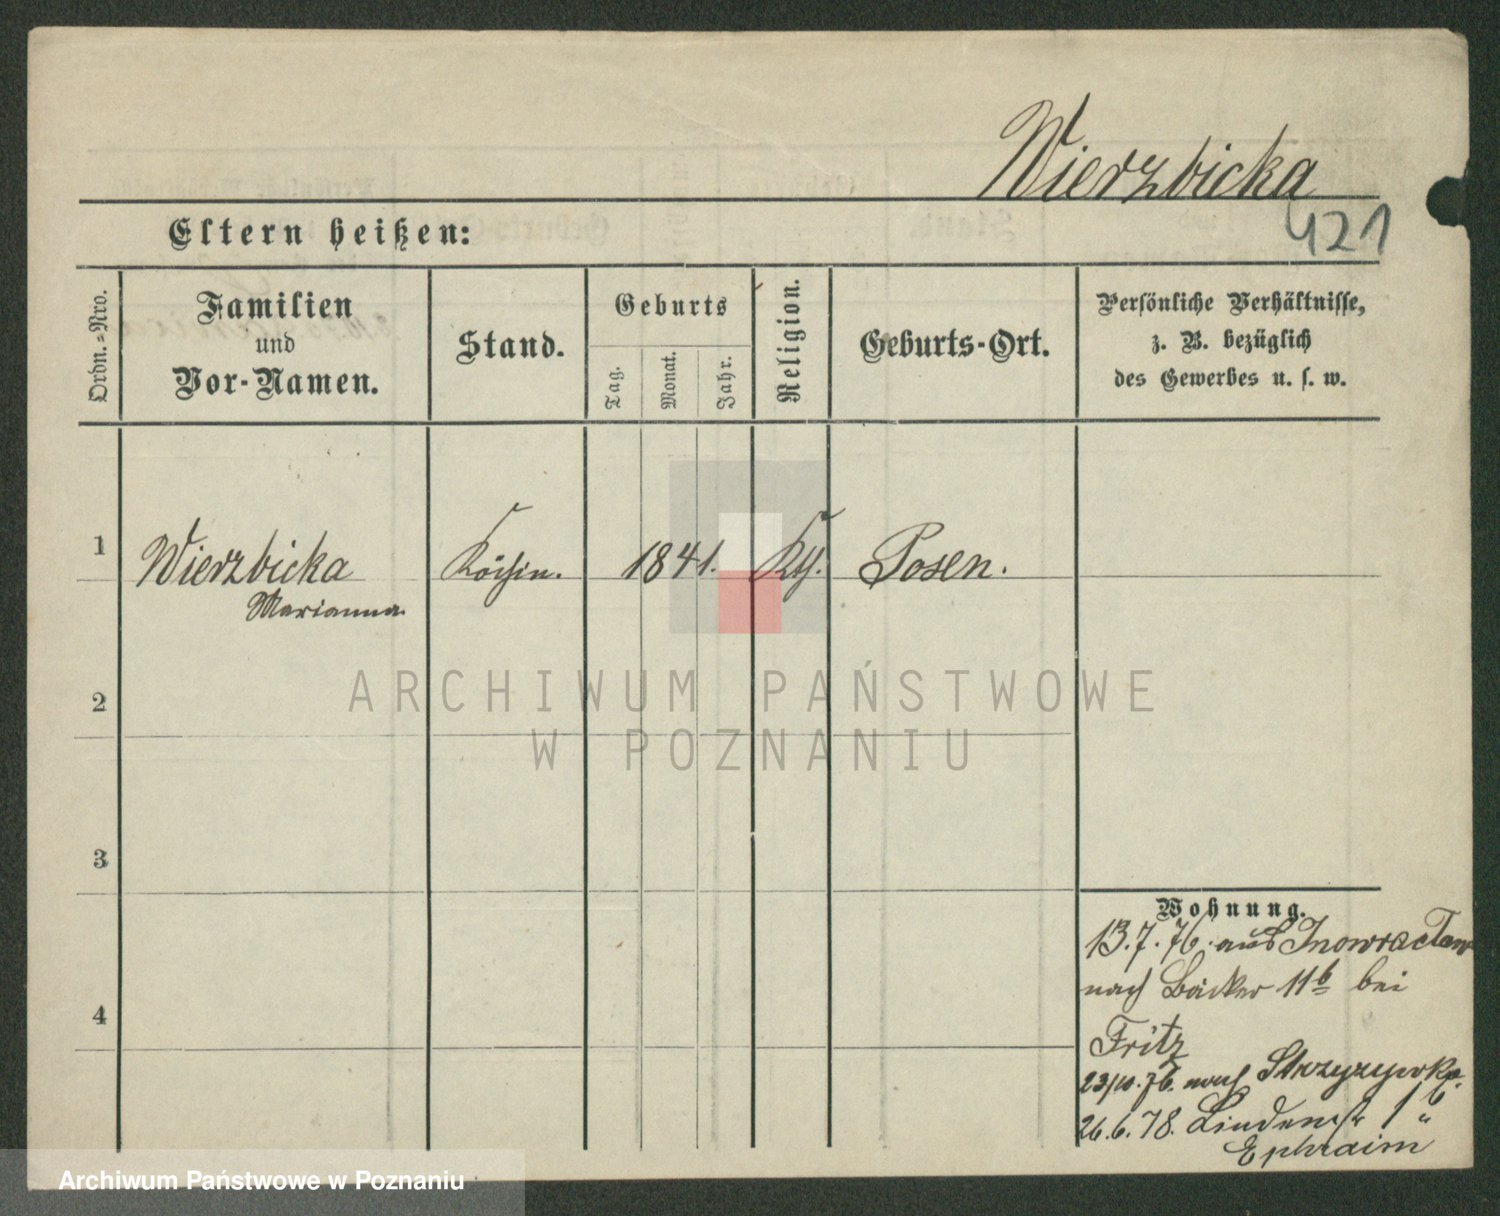 Wierzbicka
421
Eltern heißen:
Ordn.-Nro.
Familien
und
Vor-Namen.
Stand.
Geburts
Tag.
Monat.
Jahr.
Religion.
Geburts-Ort.
Persönliche Verhältnisse,
z. B. bezüglich
des Gewerbes u. s. w.
1
Wierzbicka
Marianna.
Köchin.
1841.
Kth.
Posen.
ARCHIWUM PAŃSTWOWE
W POZNANIU
2
3
4
Wohnung.
13.7.76. aus Inowraclaw
nach Bäcker 11b bei
Fritz
23/10.76. nach
26.6.78. Lindenstr 1b
Ephraim
Archiwum Państwowe w Poznaniu